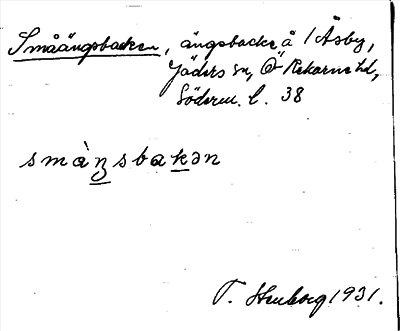 Småängsbacken, ängsbacke å Åsby,
Jäders sn, Ö Rekarne hd,
Söderm. l. 38
smàŋsbakən
T. 1931.